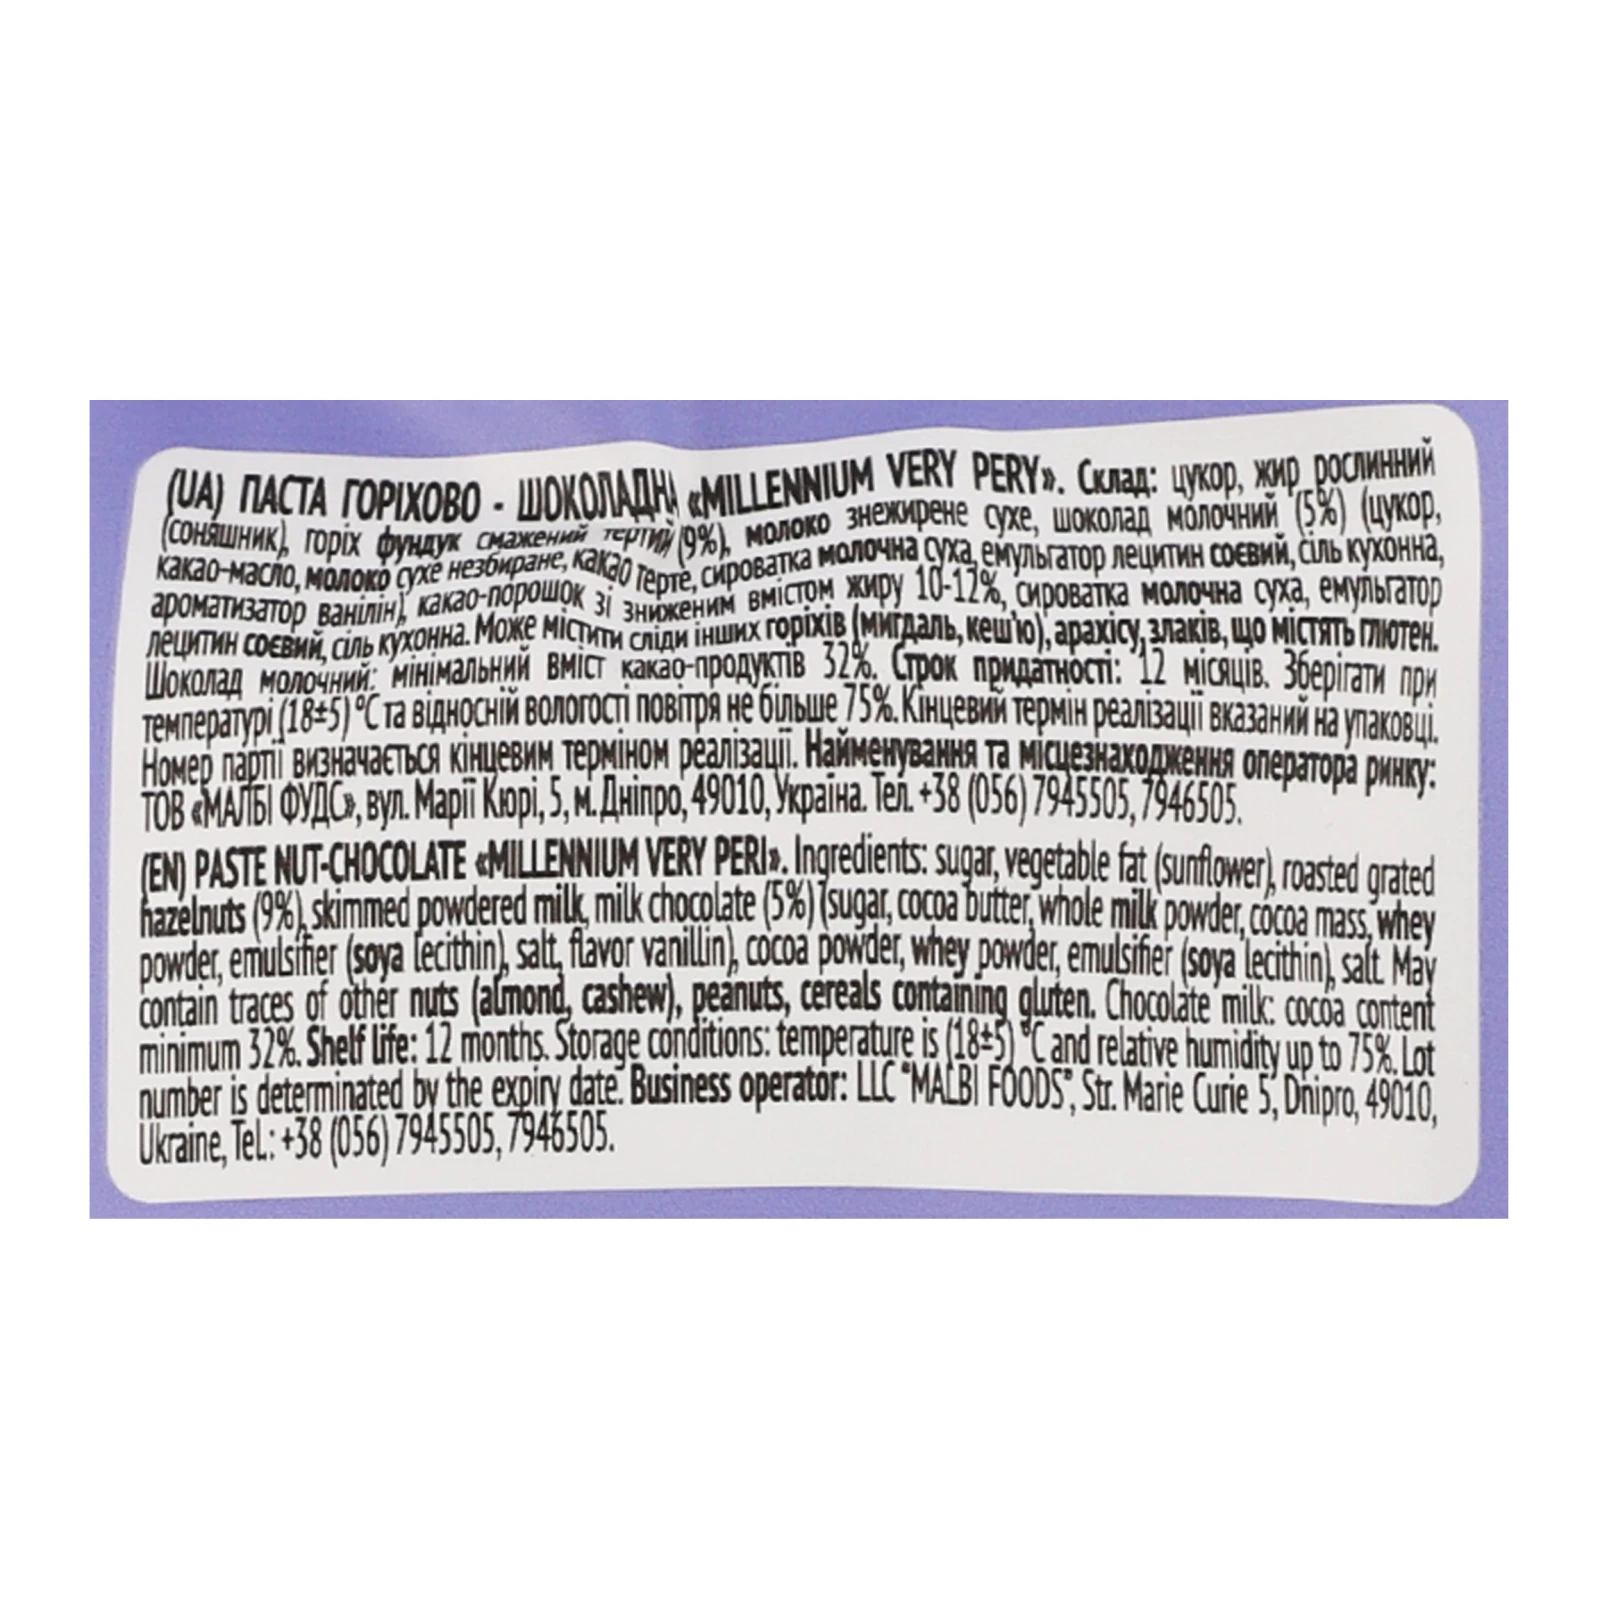 (UA) ПАСТА ГОРІХОВО - ШОКОЛАДНА «MILLENNIUM VERY PERY». Склад: цукор, жир рослинний
(соняшник), горіх фундук смажений тертий (9%), молоко знежирене сухе, шоколад молочний (5%) (цукор,
какао-масло, молоко сухе незбиране, какао терте, сироватка молочна суха, емульгатор лецитин соєвий, сіль кухонна,
ароматизатор ванілін), какао-порошок зі зниженим вмістом жиру 10-12%, сироватка молочна суха, емульгатор
лецитин соєвий, сіль кухонна. Може містити сліди інших горіхів (мигдаль, кеш'ю), арахісу, злаків, що містять глютен.
Шоколад молочний: мінімальний вміст какао-продуктів 32%. Строк придатності: 12 місяців. Зберігати при
температурі (18±5) °С та відносній вологості повітря не більше 75%. Кінцевий термін реалізації вказаний на упаковці.
Номер партії визначається кінцевим терміном реалізації. Найменування та місцезнаходження оператора ринку:
ТОВ «МАЛБІ ФУДС», вул. Марії Кюрі, 5, м. Дніпро, 49010, Україна. Тел. +38 (056) 7945505, 7946505.
(EN) PASTE NUT-CHOCOLATE «MILLENNIUM VERY PERI». Ingredients: sugar, vegetable fat (sunflower), roasted grated
hazelnuts (9%), skimmed powdered milk, milk chocolate (5%) (sugar, cocoa butter, whole milk powder, cocoa mass, whey
powder, emulsifier (soya lecithin), salt, flavor vanillin), cocoa powder, whey powder, emulsifier (soya lecithin), salt. May
contain traces of other nuts (almond, cashew), peanuts, cereals containing gluten. Chocolate milk: cocoa content
minimum 32%. Shelf life: 12 months. Storage conditions: temperature is (18±5) °C and relative humidity up to 75%. Lot
number is determinated by the expiry date. Business operator: LLC "MALBI FOODS", Str. Marie Curie 5, Dnipro, 49010,
Ukraine, Tel.: +38 (056) 7945505, 7946505.